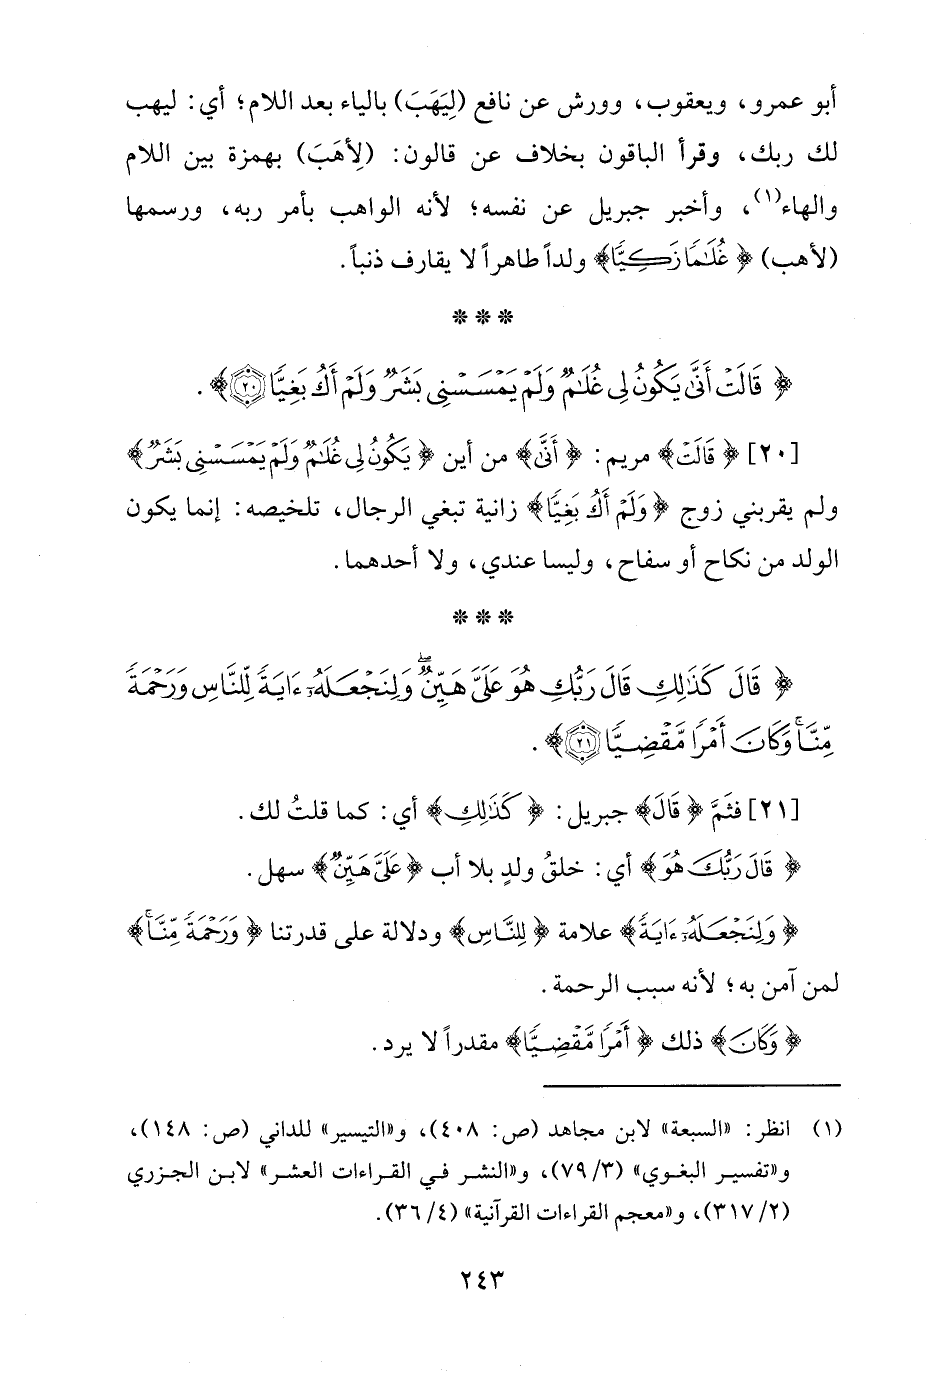 أبو عمرو، ويعقوب، وورش عن نافع (لِيَهَبَ) بالياء بعد اللام؛ أي: ليهب
لك ربك، وقرأ الباقون بخلاف عن قالون: (لِأَهَبَ) بهمزة بين اللام
والهاء(١)، وأخبر جبريل عن نفسه؛ لأنه الواهب بأمر ربه، ورسمها
(لأهب) ﴿غُلَٰمًا زَكِيًّا﴾ ولداً طاهراً لا يقارف ذنباً.
* * *
﴿قَالَتْ أَنَّىٰ يَكُونُ لِي غُلَٰمٌ وَلَمْ يَمْسَسْنِي بَشَرٌ وَلَمْ أَكُ بَغِيًّا ٢٠﴾.
[٢٠] ﴿قَالَتْ﴾ مريم: ﴿أَنَّىٰ﴾ من أين ﴿يَكُونُ لِي غُلَٰمٌ وَلَمْ يَمْسَسْنِي بَشَرٌ﴾
ولم يقربني زوج ﴿وَلَمْ أَكُ بَغِيًّا﴾ زانية تبغي الرجال، تلخيصه: إنما يكون
الولد من نكاح أو سفاح، وليسا عندي، ولا أحدهما.
* * *
﴿قَالَ كَذَٰلِكِ قَالَ رَبُّكِ هُوَ عَلَيَّ هَيِّنٌۖ وَلِنَجْعَلَهُۥٓ ءَايَةً لِّلنَّاسِ وَرَحْمَةً
مِّنَّاۚ وَكَانَ أَمْرًا مَّقْضِيًّا ٢١﴾.
[٢١] فثَمَّ ﴿قَالَ﴾ جبريل: ﴿كَذَٰلِكِ﴾ أي: كما قلتُ لك.
﴿قَالَ رَبُّكِ هُوَ﴾ أي: خلقُ ولدٍ بلا أب ﴿عَلَيَّ هَيِّنٌ﴾ سهل.
﴿وَلِنَجْعَلَهُۥٓ ءَايَةً﴾ علامة ﴿لِلنَّاسِ﴾ ودلالة على قدرتنا ﴿وَرَحْمَةً مِّنَّاۚ﴾
لمن آمن به؛ لأنه سبب الرحمة.
﴿وَكَانَ﴾ ذلك ﴿أَمْرًا مَّقْضِيًّا﴾ مقدراً لا يرد.
(١) انظر: «السبعة» لابن مجاهد (ص: ٤٠٨)، و«التيسير» للداني (ص: ١٤٨)،
و«تفسير البغوي» (٣/ ٧٩)، و«النشر في القراءات العشر» لابن الجزري
(٢/ ٣١٧)، و«معجم القراءات القرآنية» (٤/ ٣٦).
٢٤٣